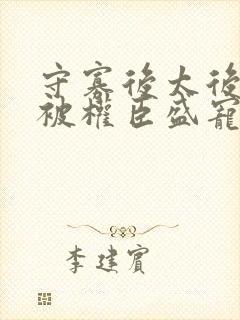 守寡後太後
被權臣盛寵
李建賓